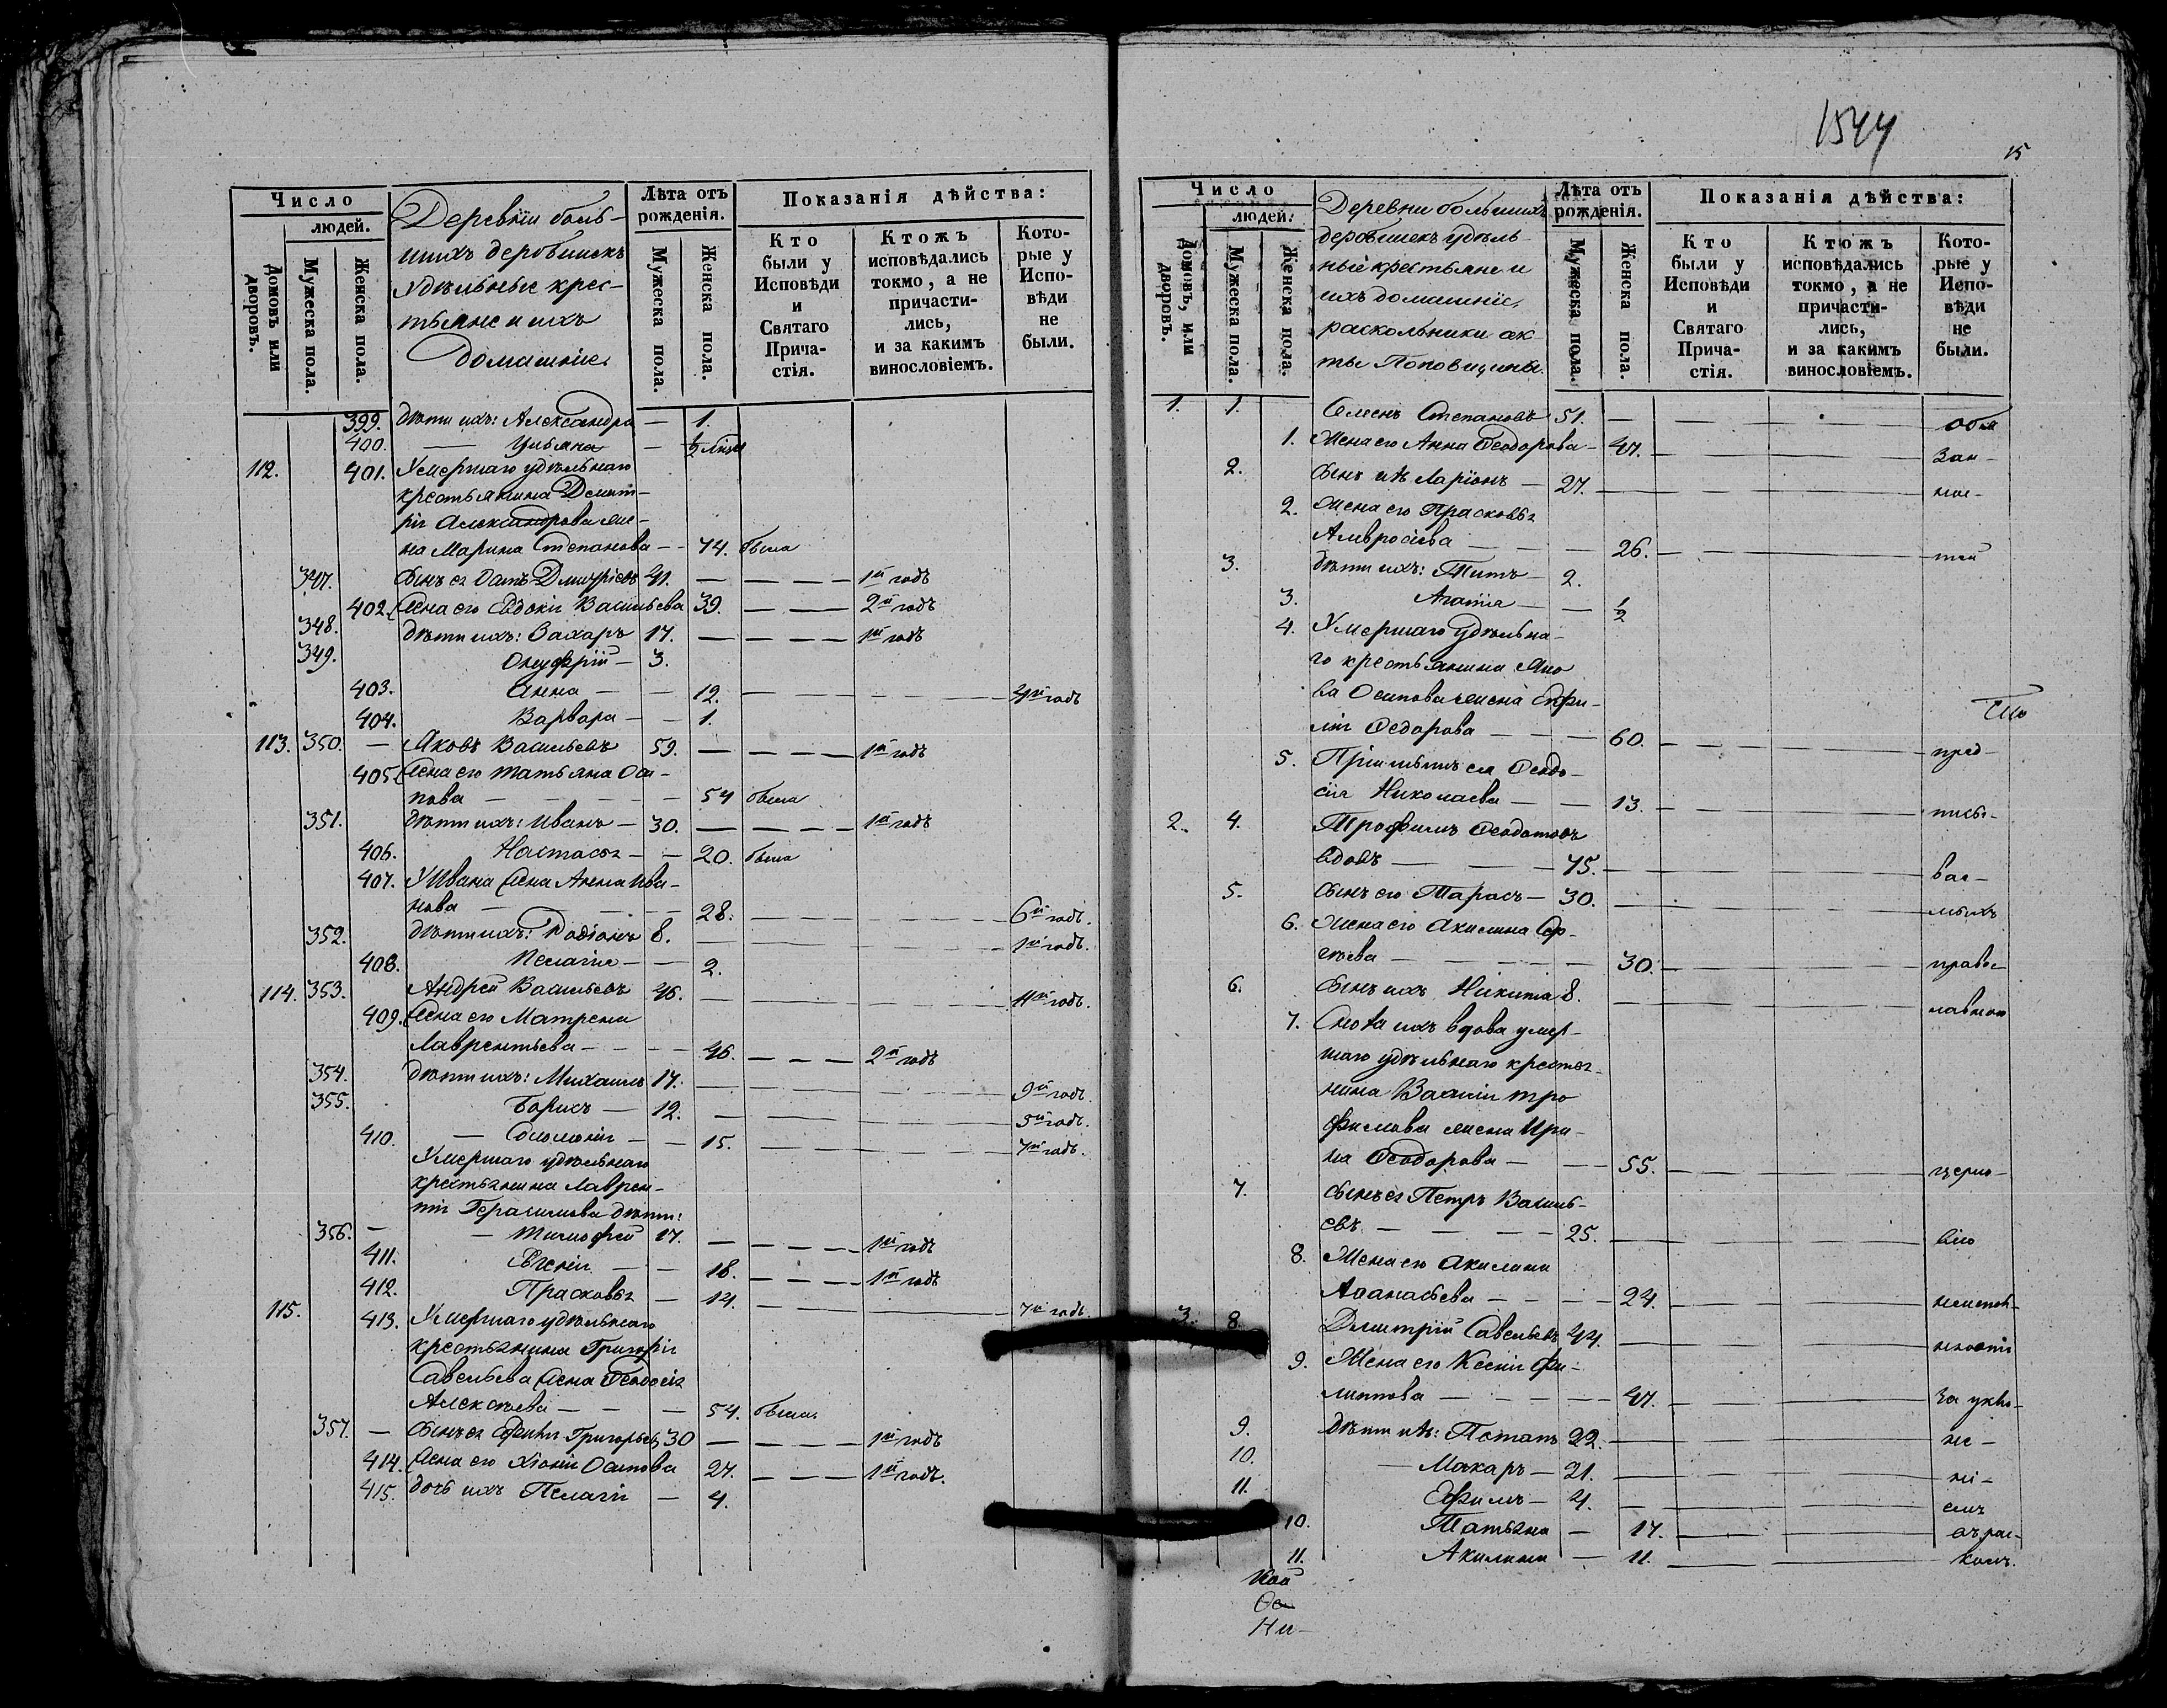 Число
людей.
Домовъ или дворовъ.
Мужеска пола.
Женска пола.
Деревни боль-
шихъ деревушекъ
удѣльные крес-
тьяне и ихъ
домашніе.
Лѣта отъ рожденія.
Мужеска пола.
Женска пола.
Показанія дѣйства:
Кто были у Исповѣди и Святаго Прича- стія.
Ктожъ исповѣдались токмо, а не причасти- лись, и за какимъ винословіемъ.
Кото- рые у Испо- вѣди не были.
399. дѣти ихъ: Александра — 1.
400. — Ульяна — 1/2
112. 401. Умершаго удѣльнаго
крестьянина Димит-
рія Александрова же-
на Марина Степанова — 74. была
347. сынъ ея Дмитріевъ 41. — 1й годъ
402. жена его Евдокія Васильева 39. — 2й годъ
348. дѣти ихъ: Захаръ 17. — 1й годъ
349. Онуфрій — 3.
403. Анна — 12. — 4й годъ
404. Варвара — 1.
113. 350. — Яковъ Васильевъ 59. — 1й годъ
405. жена его Татьяна Оси-
пова — 54 была
351. дѣти ихъ: Иванъ — 30. — 1й годъ
406. Настасья — 20. была
407. У Ивана жена Анна Ива-
нова — 28. — 6й годъ.
352. дѣти ихъ: Родіонъ 8. — 1й годъ.
408. Пелагія — 2.
114. 353. Андрей Васильевъ 46. — 4й годъ.
409. жена его Матрена
Лаврентьева — 46. — 2й годъ
354. дѣти ихъ: Михаилъ 17. — 9й годъ.
355. Борисъ — 12. — 5й годъ.
410. — Соломонія — 15. — 7й годъ.
Умершаго удѣльнаго
крестьянина Лаврен-
тія Герасимова дѣти:
356. — Тимофей 17. — 1й годъ
411. Евгенія — 18. — 1й годъ
412. Прасковья — 14. — 7й годъ
115. 413. Умершаго удѣльнаго
крестьянина Григорія
Савельева жена Ѳеодосія
Алексѣева — 54. была
357. — сынъ ея Григорьевъ 30 — 1й годъ
414. жена его Хіонія Осипова 27. — 1й годъ.
415. дочь ихъ Пелагія — 4.
1544
15
Число
людей.
Домовъ, или дворовъ.
Мужеска пола.
Женска пола.
Деревни большихъ
деревушекъ удѣль-
ные крестьяне и
ихъ домашніе,
раскольники сек-
ты Поповщины.
Лѣта отъ рожденія.
Мужеска пола.
Женска пола.
Показанія дѣйства:
Кто были у Исповѣди и Святаго Прича- стія.
Ктожъ исповѣдались токмо, а не причасти- лись, и за какимъ винословіемъ.
Кото- рые у Испо- вѣди не были.
1. 1. Семенъ Степановъ 51. —
1. Жена его Анна Ѳеодорова — 47. — зан-
2. сынъ ихъ Ларіонъ — 27. —
2. Жена его Прасковья
Амвросіева — 26. —
3. дѣти ихъ: Титъ — 2.
3. Агаѳія — 1/2
4. Умершаго удѣльна-
го крестьянина Яко
ва Осипова жена Ефи-
мія Ѳедорова — 60. — пред-
5. Ѳеодо-
сія Николаева — 13. — писы-
2. 4. Трофимъ Ѳеодотовъ
вдовъ — 75. — вае-
5. сынъ его Тарасъ — 30. — мыхъ
6. Жена его Акилина Сер-
гѣева — 30. — правос-
6. сынъ ихъ Никита 8. — лавною
7. Сноха ихъ вдова умер-
шаго удѣльнаго крестья-
нина Василія Тро
фимова жена Ири-
на Ѳеодорова — 55. — церко-
7. сынъ ея Петръ Василь-
евъ — 25. — вію
8. Жена его Акилина
Аѳанасьева — 24. —
3. 8. Дмитрій Савельевъ 44. —
9. Жена его Ксенія Фи-
липпова — 47. — за укло-
9. дѣти ихъ: Потапъ 22. — не-
10. — Макаръ — 21. — ні-
11. Ефимъ — 4. — емъ
10. Татьяна — 17. — въ рас-
11. Акилина — 11. — колъ.